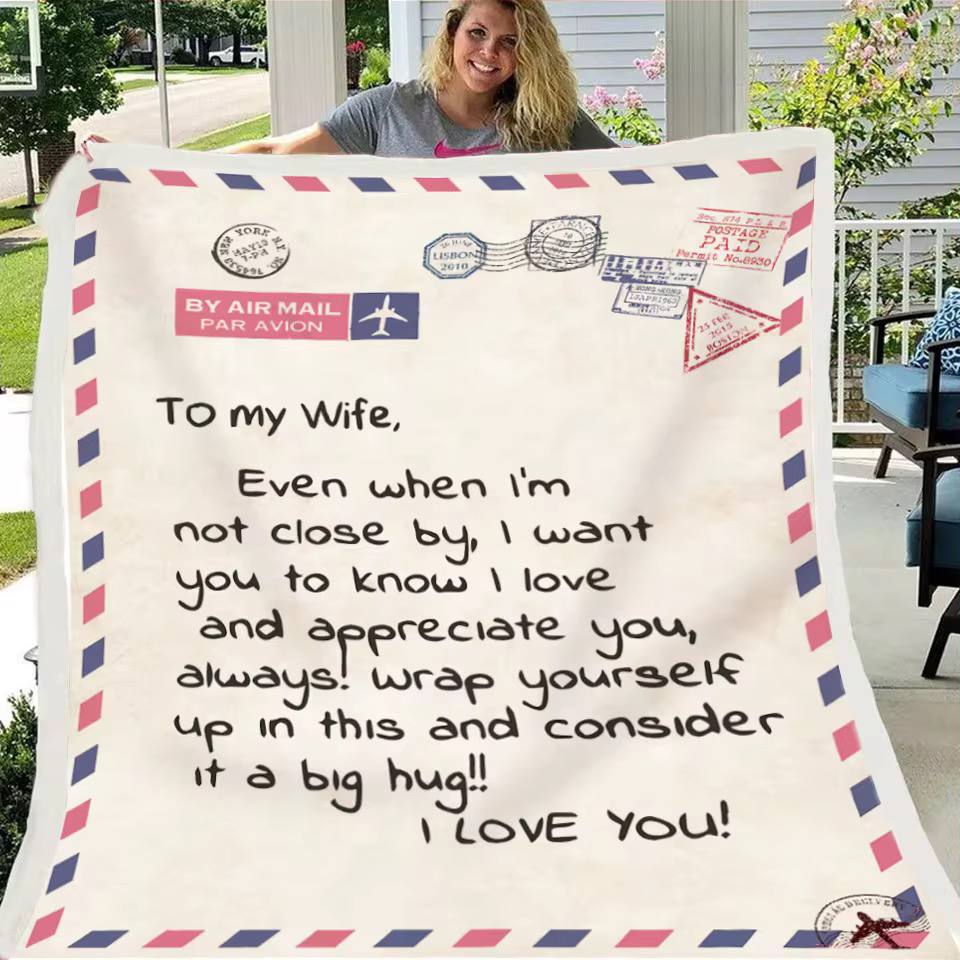 NEW YORK N.Y.
MAY 19
7-PM
LISBON
2010
Sec. 874 P.L & R
POSTAGE
PAID
Permit No.8930
HONG KONG
25 FEB
2015
BOSTON
BY AIR MAIL
PAR AVION
To my Wife,
Even when I'm
not close by, I want
you to know I love
and appreciate you,
always! wrap yourself
up in this and consider
it a big hug!!
I LOVE YOU!